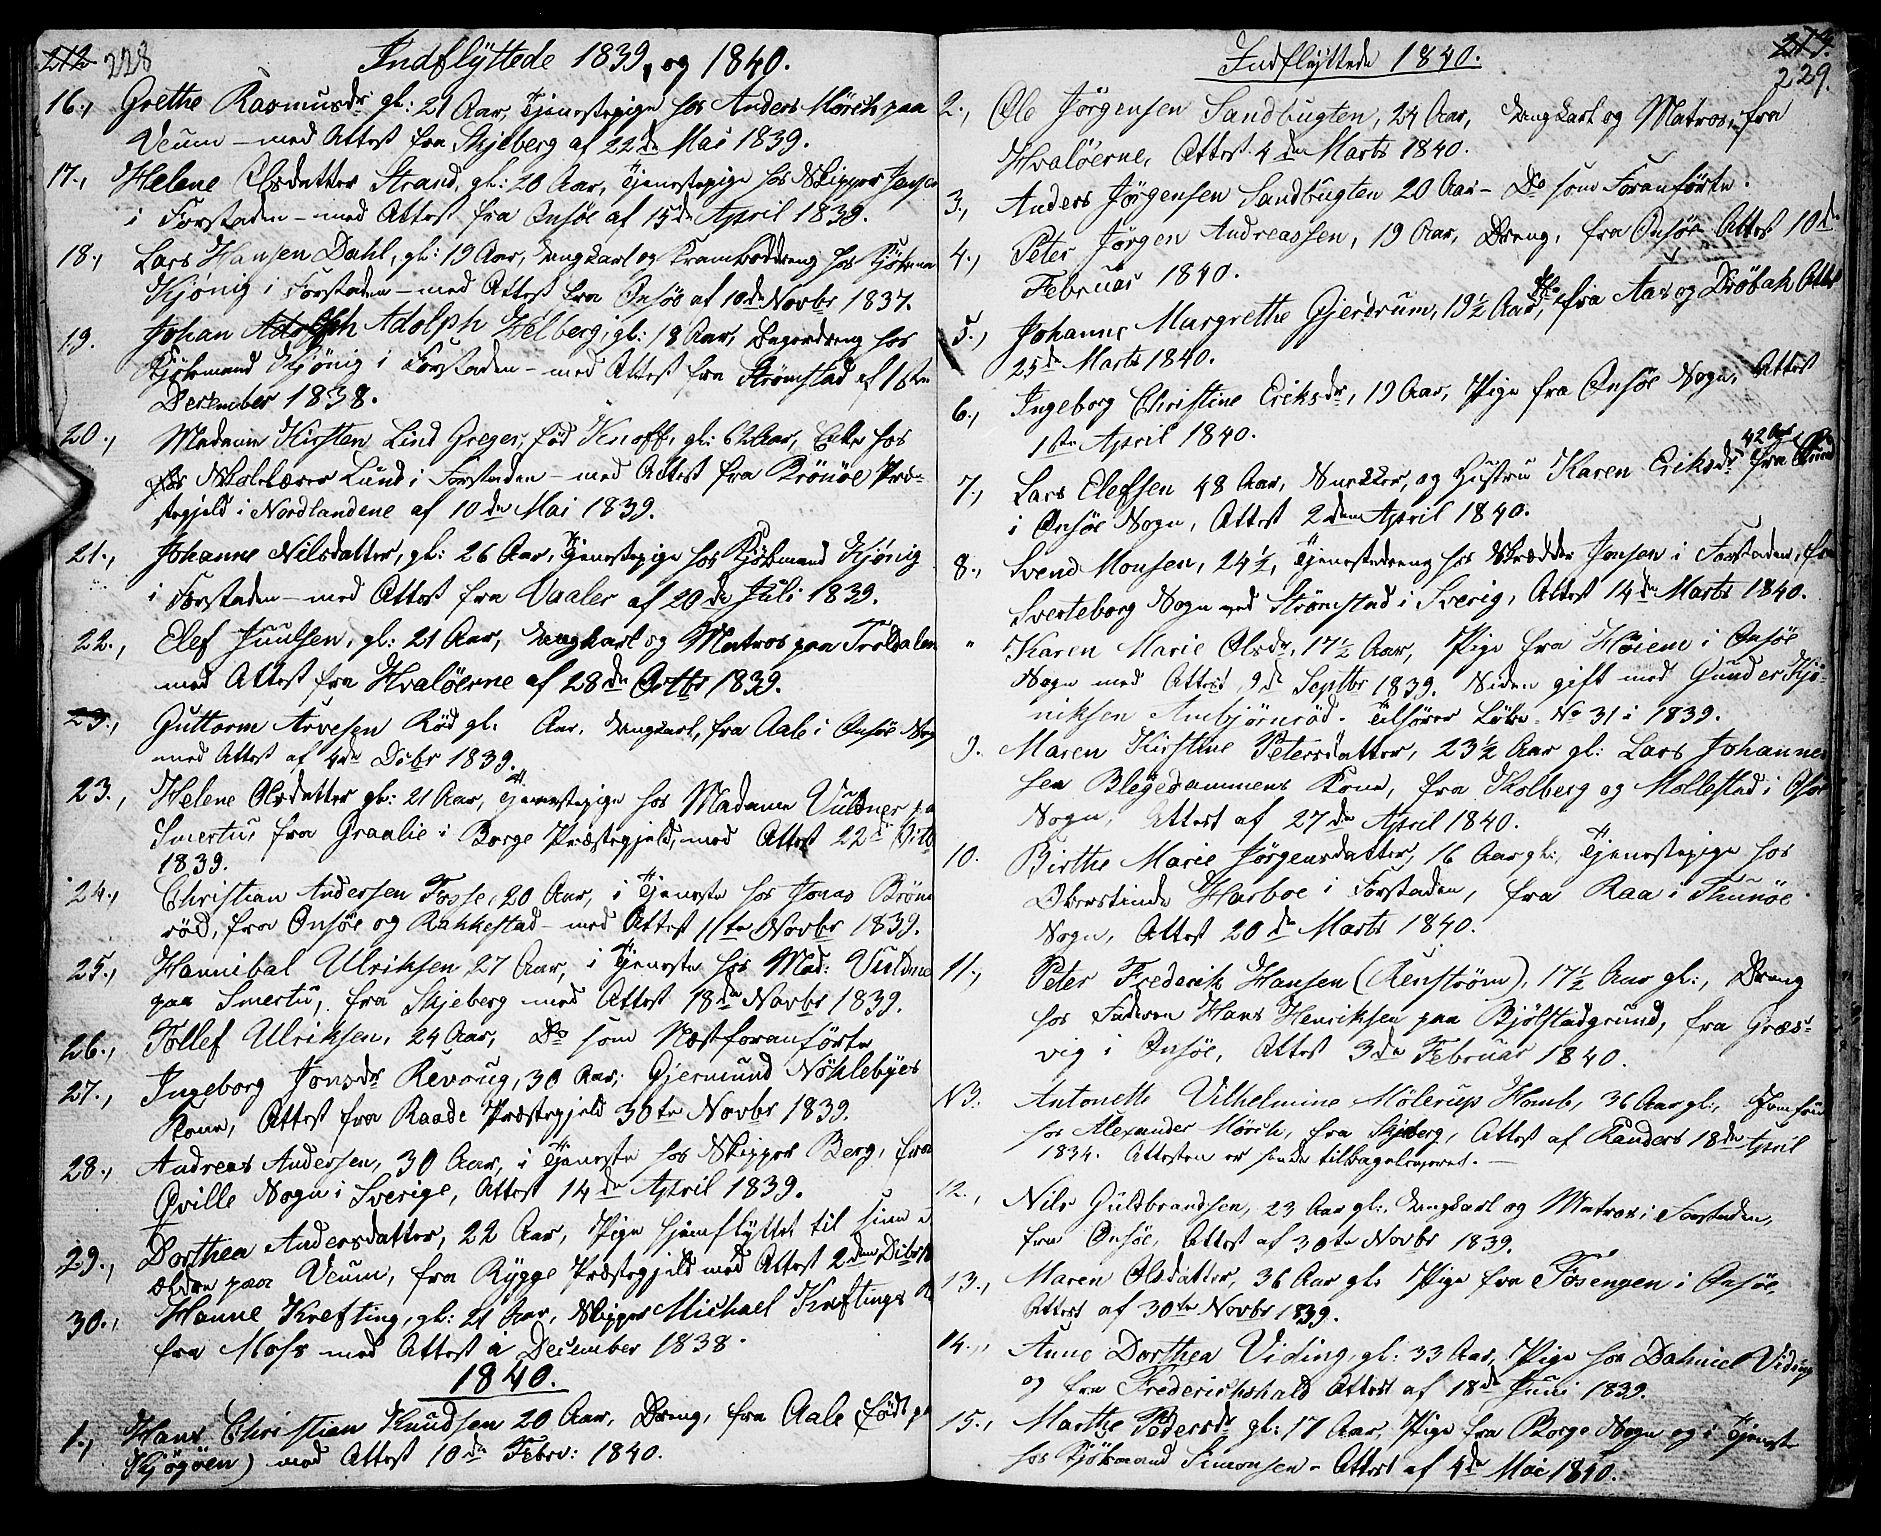 212 228 Indflyttede 1839, og 1840.
16., Grethe Rasmusdr gl: 21 Aar, Tjenestepige hos Anders Mörch paa
Veum – med Attest fra Skjeberg af 22de Mai 1839.
17., Helene Olsdatter Strand, gl: 20 Aar, Tjenestepige hos Skipper Jensen
i Forstaden – med Attest fra Onsöe af 15de April 1839.
18., Lars Hansen Dahl, gl: 19 Aar, Ungkarl og Kramboddreng hos Kjöbmand
Kjönig i Forstaden – med Attest fra Onsöe af 10de Novbr 1837.
19. Johan Adolph Adolph Helberg, gl: 18 Aar, Bagerdreng hos
Kjöbmand Kjönig i Forstaden – med Attest fra Strömstad af 16de
December 1838.
20., Madame Kirsten Lind Greger, föd Knoff, gl: 62 Aar, Enke hos
hos Skolelærer Lund i Forstaden – med Attest fra Brönöe Præ-
stegjeld i Nordlandene af 10de Mai 1839.
21., Johanne Nilsdatter, gl: 26 Aar, Tjenestepige hos Kjöbmand Kjönig
i Forstaden – med Attest fra Vaaler af 20de Juli 1839.
22., Elef Juulsen, gl: 21 Aar, Ungkarl og Matros paa Troldalen
med Attest fra Hvalöerne af 28de Octbr 1839.
23., Guttorm Arvesen Röd gl. Aar. Ungkarl, fra Aale i Onsöe Sogn
med Attest af 4de Dcbr 1839.
23., Helene Olsdatter gl: 21 Aar, Tjenestepige hos Madame Vuldner paa
Smertu, fra Graalie i Borge Præstegjeld, med Attest 22de
1839.
24., Christian Andersen Fosse, 20 Aar, i Tjeneste hos Jonas Bröne
röd, fra Onsöe og Rakkestad – med Attest 11te Novbr 1839.
25., Hannibal Ulriksen 27 Aar, i Tjeneste hos Mad: Vuldner
paa Smertu, fra Skjeberg med Attest 18de Novbr 1839.
26., Tollef Ulriksen, 24 Aar, Do som Næstforanförte
27., Ingeborg Jonsdr Revoug, 30 Aar, Gjermund Nöklebyes
Kone, Attest fra Raade Præstegjeld 30te Novbr 1839.
28., Andreas Andersen, 30 Aar, i Tjeneste hos Skipper Berg, fra
Qville Sogn i Sverige, Attest 14de April 1839.
29., Dorthea Andersdatter, 22 Aar, Pige hjemflyttet til sine
ældre paa Veum, fra Rygge Præstegjeld med Attest 2den Dcbr
30., Hanne Krefting, gl: 21 Aar, Skipper Michael Kreftings
fra Moss med Attest a December 1838.
1840.
1., Hans Christian Knudsen 20 Aar, Dreng, fra Aale (födt paa
Kjögöen) med Attest 10de Febr: 1840.
Indflyttede 1840.
214.
229.
2., Ole Jörgensen Sandbugten, 24 Aar, Ungkarl og Matros, fra
Hvalöerne, Attest 4de Marts 1840.
3., Anders Jörgensen Sandbugten 20 Aar – Do som Foranförte.
4., Peter Jörgen Andreassen, 19 Aar, Dreng, fra Onsöe Attest 10de
Februar 1840.
5., Johanne Margrethe Gjerdrum, 19½ Aar, fra Aas og Dröbak Attest
25de Marts 1840.
6., Ingeborg Christine Eriksdr, 19 Aar, Pige fra Onsöe Sogn, Attest
1ste April 1840.
7., Lars Elefsen 48 Aar, Snedker, og Hustru Karen Eriksdr 42 Aar fra
i Onsöe Sogn, Attest 2den April 1840.
8., Svend Monsen, 24½, Tjenestedreng hos Skrædder Jensen i Forstaden, fra
Sverteborg Sogn ved Strömstad i Sverig, Attest 14de Marts 1840.
" Karen Marie Olsdr, 17½ Aar, Pige fra Höiem i Onsöe
Sogn med Attest 9de Septbr 1839. Siden gift med Gunder Kjö-
niksen Ambjörnröd. Tilförer Löbe No 31 i 1839.
9. Maren Kirstine Petersdatter, 23½ Aar gl: Lars Johannes
sen Blegedammens Kone, fra Kolberg og Mellestad i Onsöe
Sogn, Attest af 27de April 1840.
10. Birthe Marie Jörgensdatter, 16 Aar gl:, Tjenestepige hos
Oberstinde Harboe i Forstaden, fra Raa i Thunöe
Sogn, Attest 20de Marts 1840.
11., Peter Frederik Hansen (Renström), 17½ Aar gl:, Dreng
hos Faderen Hans Henriksen paa Bjölstadgrund, fra Græs-
vig i Onsöe, Attest 3de Februar 1840.
NB: Antonette Vilhelmine Mölerup Homb, 36 Aar gl:, Jomfru
hos Alexander Mörch, fra Skjeberg, Attest af Randers 18de April
1834. Attesten er hende tilbageleveret. –
12., Nils Guldbrandsen, 23 Aar gl: Ungkarl og Matros i Forstaden,
fra Onsöe, Attest af 30te Novbr 1839.
13., Maren Olsdatter, 36 Aar gl: Pige fra Tosengen i Onsöe,
Attest af 30te Novbr 1839.
14., Anne Dorthea Viding, gl: 33 Aar, Pige hos Dahniel Viding
og fra Frederichshald Attest af 18de Juni 1839.
15., Marthe Pedersdr gl: 17 Aar, Pige fra Borge Sogn og i Tjeneste
hos Kjöbmand Simonsen – Attest af 4de Mai 1840.